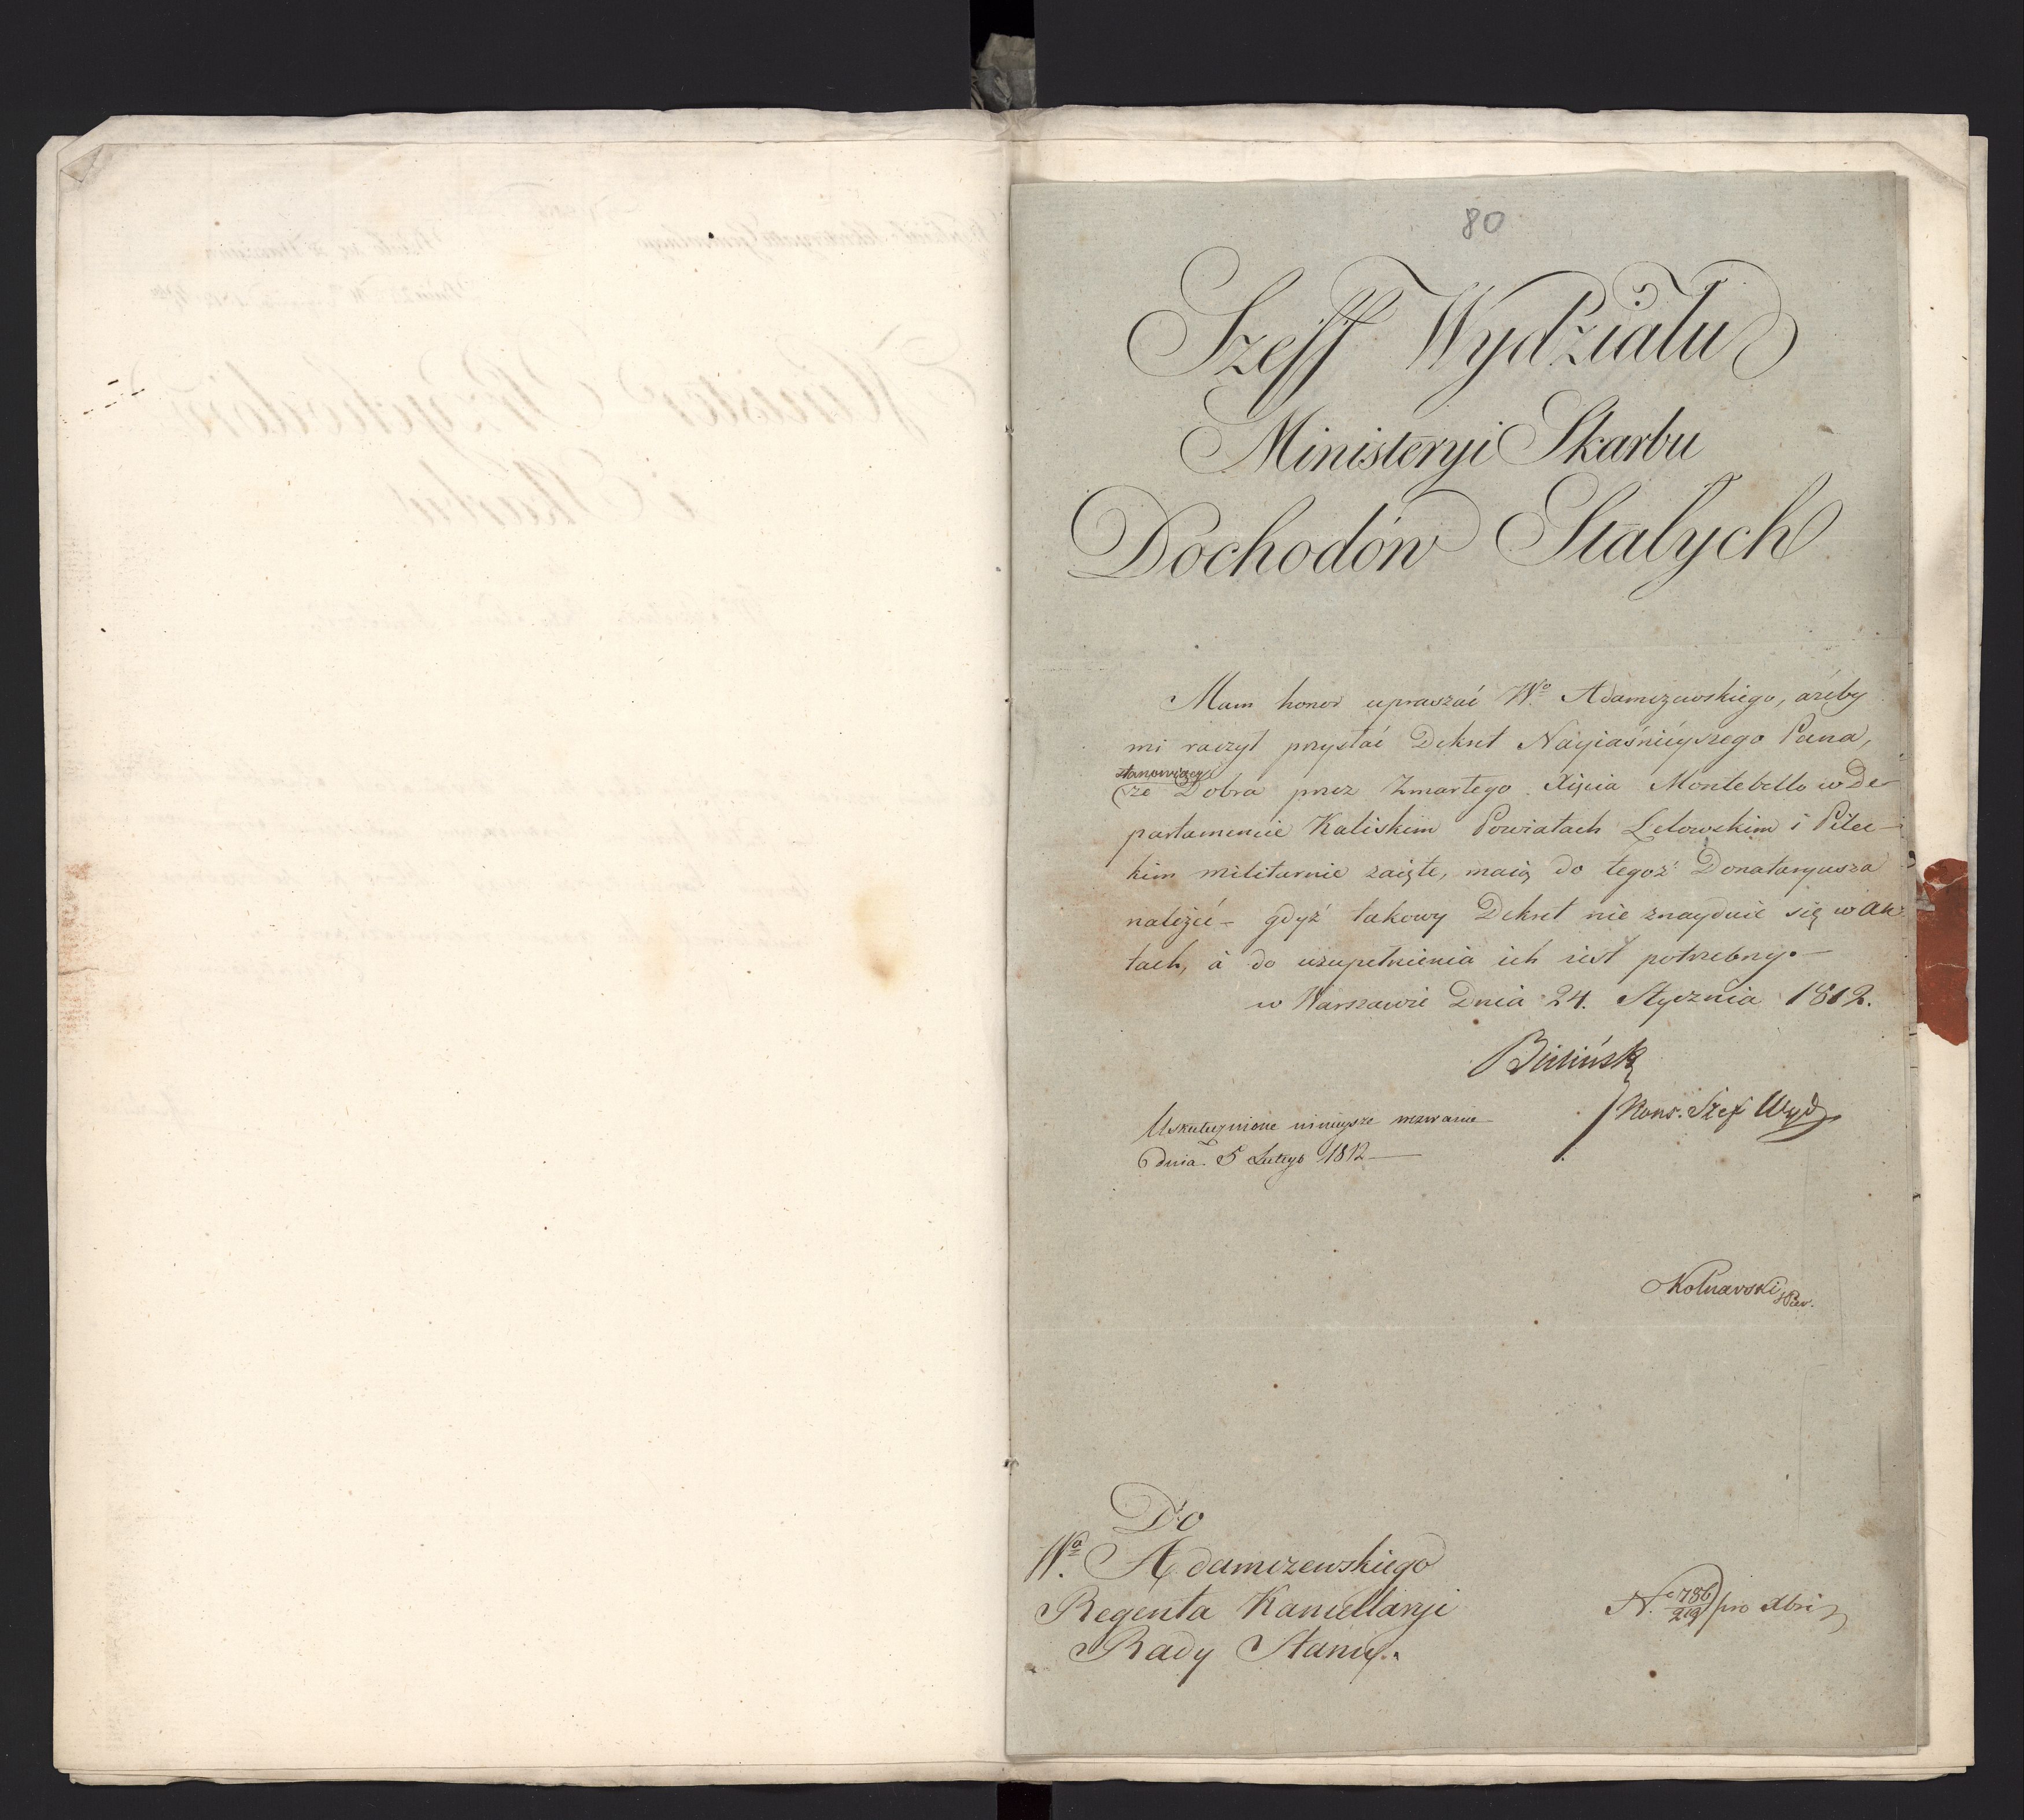 80
Szeff Wydziału
Ministeryi Skarbu
Dochodów Stałych
Mam honor upraszać Wo. Adamczewskiego, ażeby
mi raczył przysłać Dekret Nayiaśnieyszego Pana,
stanowiący
że Dobra przez Zmarłego Xięcia Montebello w De-
partamencie Kaliskim Powiatach Lelowskim i Pilec-
kim militarnie zaięte, maią do tegoż Donataryusza
należeć – gdyż takowy Dekret nie znayduie się w Ak-
tach, à do uzupełnienia ich iest potrzebny. –
w Warszawie Dnia 24. Stycznia 1812.
Bieliński
Kons. Szef Wydz
Uskutecznione ninieysze wezwanie
dnia 5 Lutego 1812 —
Kolnarski
Do
Wo. Adamczewskiego
Regenta Kancellaryi
Rady Stanu.
N. 786/219 pro Xbri